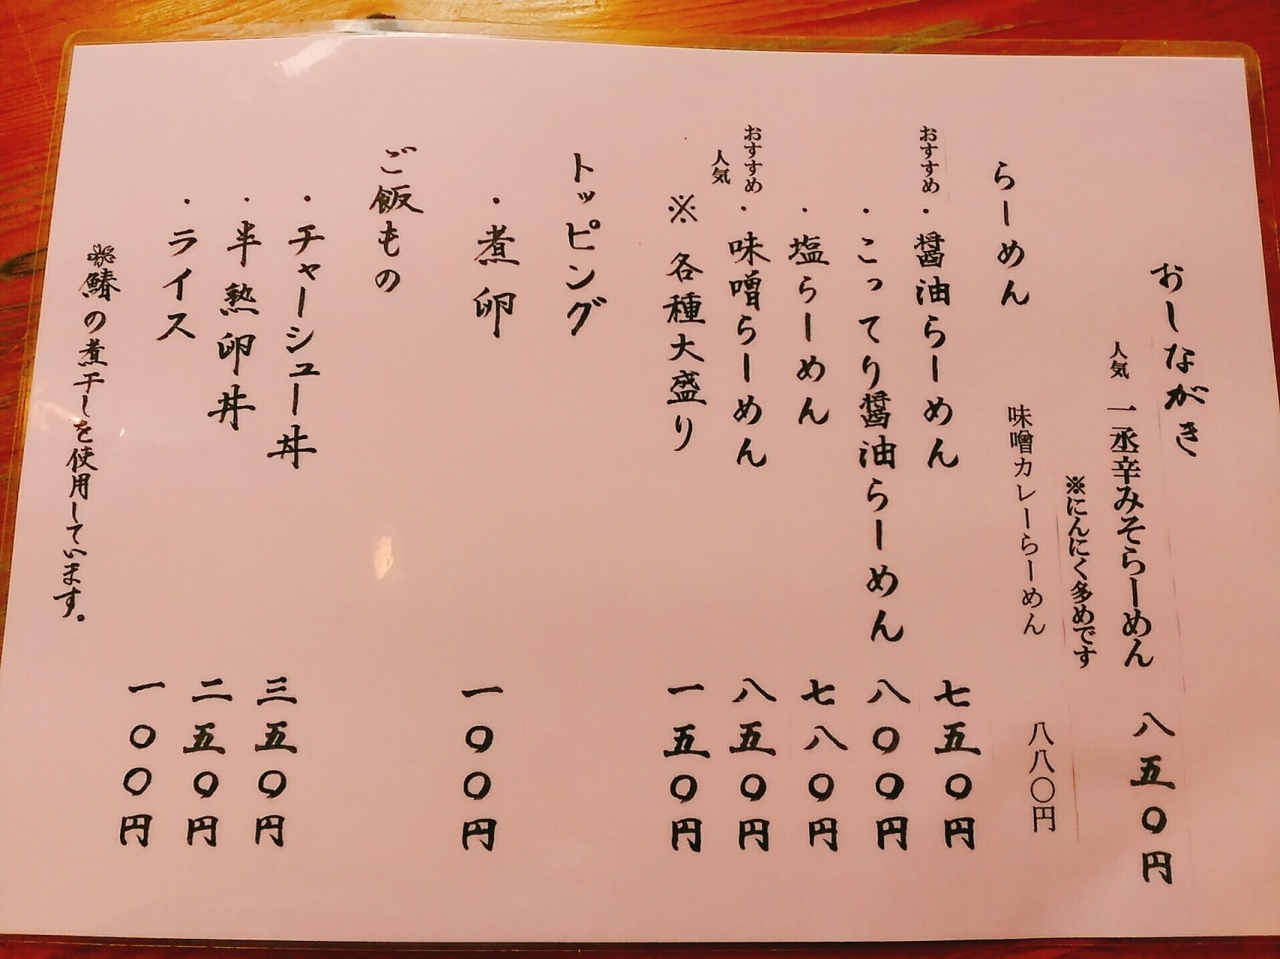 おしながき
人気 一丞辛みそらーめん 八五〇円
※にんにく多めです
味噌カレーらーめん 八八〇円
らーめん
おすすめ ・醤油らーめん 七五〇円
・こってり醤油らーめん 八〇〇円
・塩らーめん 七八〇円
おすすめ 人気 ・味噌らーめん 八五〇円
※各種大盛り 一五〇円
トッピング
・煮卵 一〇〇円
ご飯もの
・チャーシュー丼 三五〇円
・半熟卵丼 二五〇円
・ライス 一〇〇円
鰆の煮干しを使用しています。